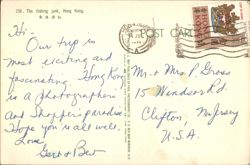 238. The fishing junk, Hong Kong.
POST CARD
Hi -
Our trip is
most exciting and
fascinating. Hong Kong
is a photographers
and shoppers paradise.
Hope you is all well.
Love,
Gert & Bev
Mr. & Mrs. P. Gross
Windsor Rd.
Clifton, N. Jersey
U.S.A.